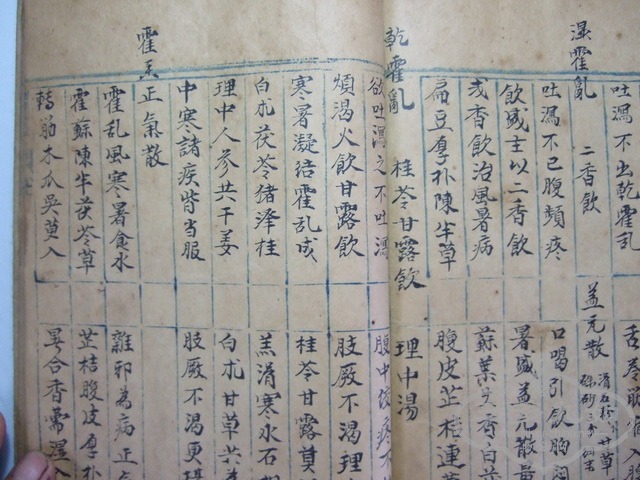 吐瀉不出乾霍乱 舌卷
濕霍亂 二香飲 益元散 滑石粉 甘草 硃砂三分
吐瀉不已腹頻疼 口喝引飲胸
飲感主以二香飲 暑盛益元散
或香飲治風暑病 蘇葉 香白
扁豆厚朴陳半草 腹皮芷桔連
乾霍亂 桂苓甘露飲 理中湯
欲吐瀉之不吐瀉 腹中 疼不
煩渴火飲甘露飲 肢厥不渴理
寒暑凝结霍乱成 桂苓甘露
白朮茯苓猪澤桂 羔滑寒水石
理中人参共干姜 白朮甘草共
中寒諸疾皆当服 肢厥不渴更
霍香正氣散
霍乱風寒暑食水 雜邪為病正
霍蘇陳半茯苓草 芷桔腹皮厚朴
轉筋木瓜吳萸入 暑合香薷濕入